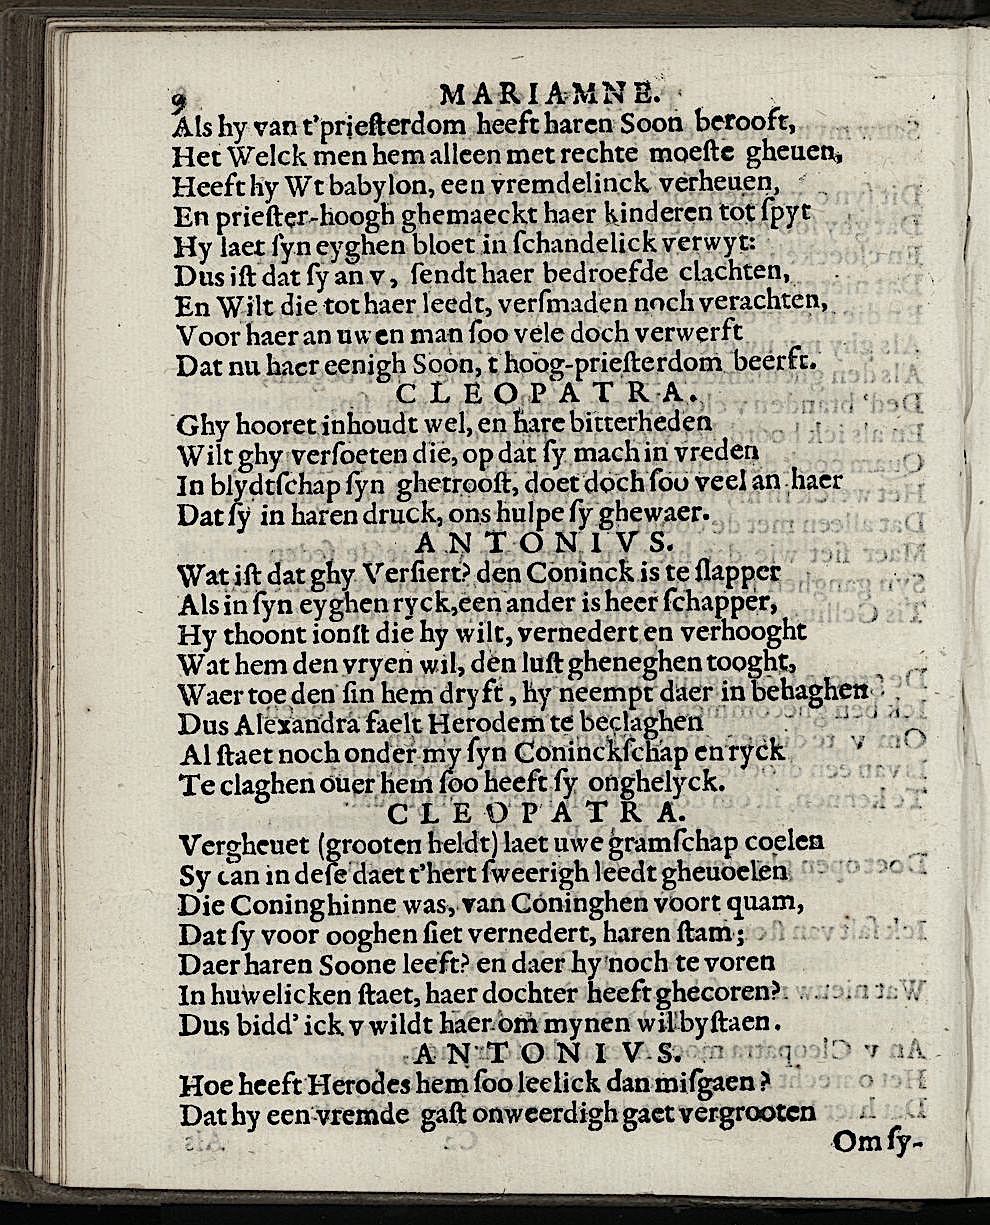 9 MARIAMNE.
Als hy van t'prieſterdom heeft haren Soon berooft,
Het Welck men hem alleen met rechte moeſte gheuen,
Heeft hy Wt babylon, een vremdelinck verheuen,
En prieſter-hoogh ghemaeckt haer kinderen tot ſpyt
Hy laet ſyn eyghen bloet in ſchandelick verwyt:
Dus iſt dat ſy an v, ſendt haer bedroefde clachten,
En Wilt die tot haer leedt, verſmaden noch verachten,
Voor haer an uwen man ſoo vele doch verwerft
Dat nu haer eenigh Soon, t hoog-prieſterdom beerft.
CLEOPATRA.
Ghy hooret inhoudt wel, en hare bitterheden
Wilt ghy verſoeten die, op dat ſy mach in vreden
In blydtſchap ſyn ghetrooſt, doet doch ſou veel an haer
Dat ſy in haren druck, ons hulpe ſy ghewaer.
ANTONIVS.
Wat iſt dat ghy Verſiert? den Coninck is te ſlapper
Als in ſyn eyghen ryck, een ander is heer ſchapper,
Hy thoont ionſt die hy wilt, vernedert en verhooght
Wat hem den vryen wil, den luſt gheneghen tooght,
Waer toe den ſin hem dryft, hy neempt daer in behaghen
Dus Alexandra faelt Herodem te beclaghen
Al ſtaet noch onder my ſyn Coninckſchap en ryck
Te claghen ouer hem ſoo heeft ſy onghelyck.
CLEOPATRA.
Vergheuet (grooten heldt) laet uwe gramſchap coelen
Sy can in deſe daet t'hert ſweerigh leedt gheuoelen
Die Coninghinne was, van Coninghen voort quam,
Dat ſy voor ooghen ſiet vernedert, haren ſtam;
Daer haren Soone leeft? en daer hy noch te voren
In huwelicken ſtaet, haer dochter heeft ghecoren?
Dus bidd' ick v wildt haer om mynen wil byſtaen.
ANTONIVS.
Hoe heeft Herodes hem ſoo leelick dan miſgaen?
Dat hy een vremde gaſt onweerdigh gaet vergrooten
Om ſy-